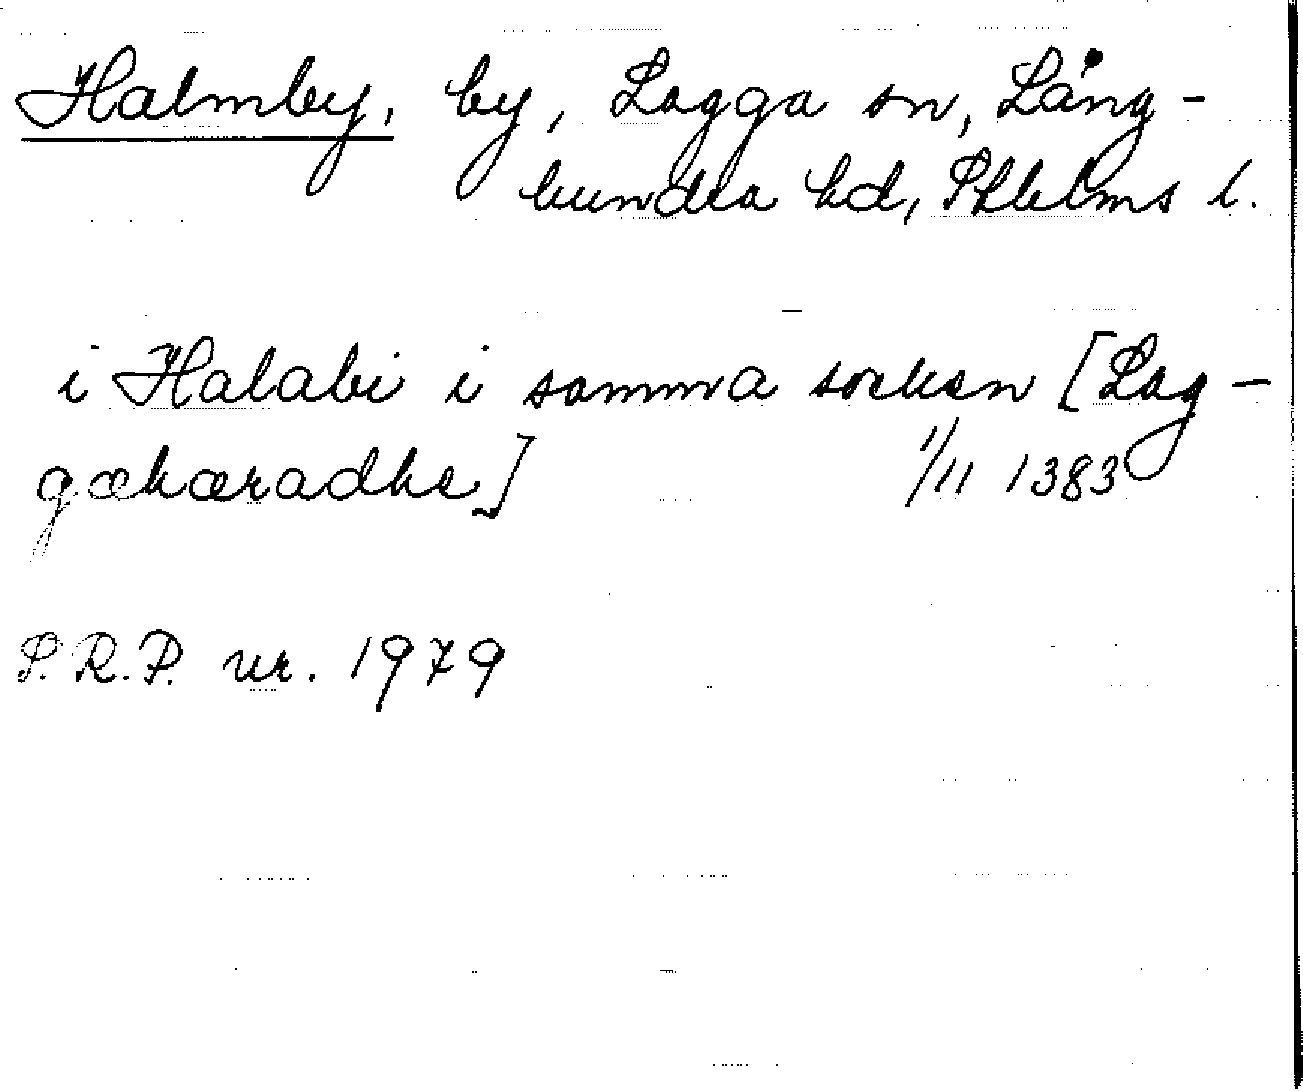 Halmby, by, Lagga sn, Lång-
hundra hd, Sthlms l.
i Halabi i samma socken [Lag-
gæhæradhe]
1/11 1383
S.R.P. nr. 1979